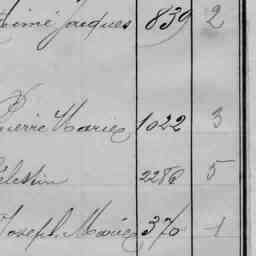 Aimé Jacques 839 2
Pierre Marie 1022 3
Célestin 2286 5
Joseph Marie 370 1